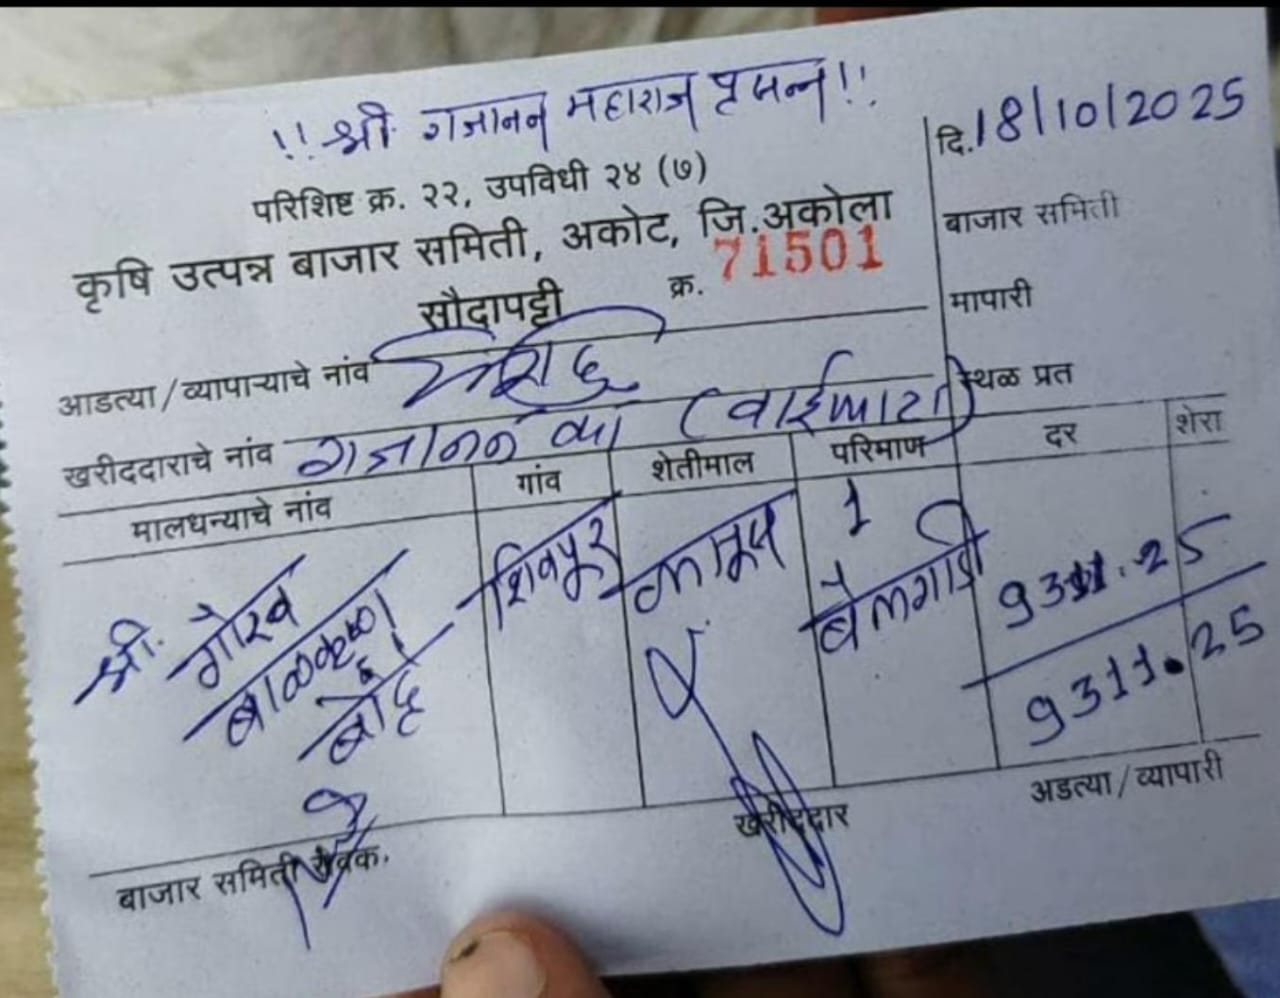 !! श्री गजानन महाराज प्रसन्न !!
परिशिष्ट क्र. २२, उपविधी २४ (७)
दि. 18/10/2025
कृषि उत्पन्न बाजार समिती, अकोट, जि.अकोला
बाजार समिती
सौदापट्टी
क्र. 71501
मापारी
आडत्या/व्यापाऱ्याचे नांव
स्थळ प्रत
खरीददाराचे नांव गजानन
मालधन्याचे नांव गांव शेतीमाल परिमाण दर शेरा
श्री. गौरव शिवपूर कापूस 1 9311.25
बाळकृष्ण बैलगाडी
बोंद्रे 9311.25
बाजार समिती सेवक.
खरीददार
अडत्या/व्यापारी